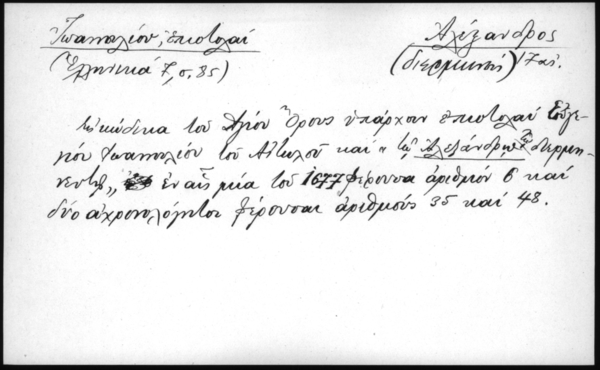 Ἰωαννουλίου, ἐπιστολαί
(Ἑλληνικά 7, σ. 85)
Ἀλέξανδρος
(διερμηνεύς) 17 αἰ.
κώδικα τοῦ Ἁγίου Ὄρους ὑπάρχουν ἐπιστολαί Εὐγε
νίου Ἰωαννουλίου τοῦ Αἰτωλοῦ καί "τῷ Ἀλεξάνδρῳ τῷ διερμη
νευτῇ", ἐν αἷς μία τοῦ 1677 φέρουσα ἀριθμόν 6 καί
δύο ἀχρονολόγητοι φέρουσαι ἀριθμούς 35 καί 48.